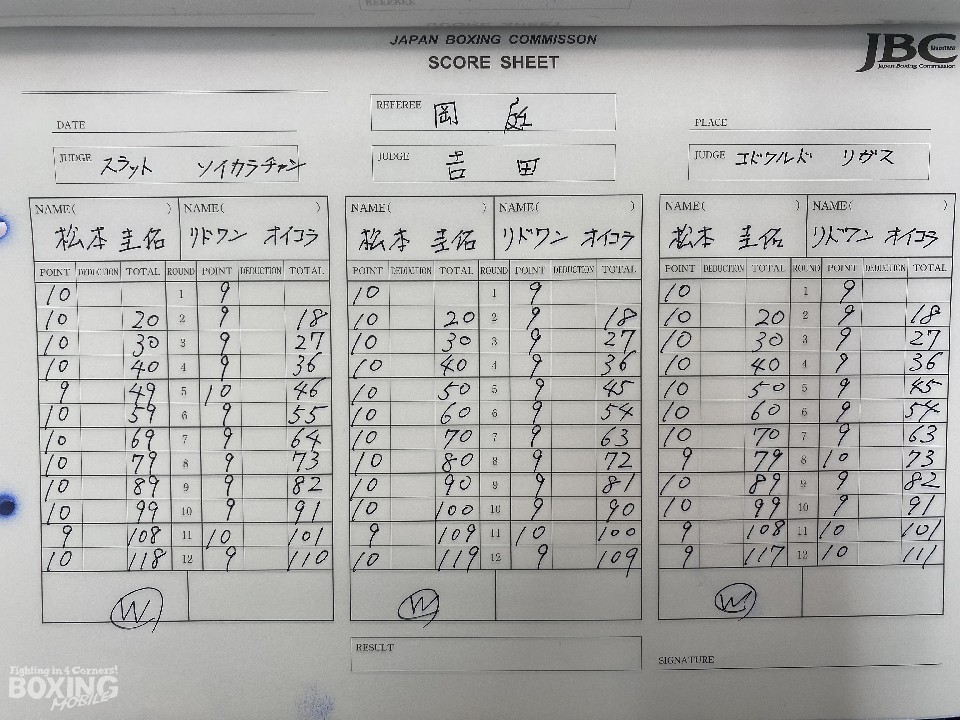 SCORE SHEET
JAPAN BOXING COMMISSON
SCORE SHEET
JBC
Japan Boxing Commission
DATE
REFEREE 岡
PLACE
JUDGE スラット ソイカラチャン
JUDGE 吉田
JUDGE エドワルド リガス
NAME( ) NAME( ) NAME( ) NAME( ) NAME( ) NAME( )
松本 圭佑 リドワン オイコラ 松本 圭佑 リドワン オイコラ 松本 圭佑 リドワン オイコラ
POINT DEDUCTION TOTAL ROUND POINT DEDUCTION TOTAL POINT DEDUCTION TOTAL ROUND POINT DEDUCTION TOTAL POINT DEDUCTION TOTAL ROUND POINT DEDUCTION TOTAL
10 1 9 10 1 9 10 1 9
10 20 2 9 18 10 20 2 9 18 10 20 2 9 18
10 30 3 9 27 10 30 3 9 27 10 30 3 9 27
10 40 4 9 36 10 40 4 9 36 10 40 4 9 36
9 49 5 10 46 10 50 5 9 45 10 50 5 9 45
10 59 6 9 55 10 60 6 9 54 10 60 6 9 54
10 69 7 9 64 10 70 7 9 63 10 70 7 9 63
10 79 8 9 73 10 80 8 9 72 9 79 8 10 73
10 89 9 9 82 10 90 9 9 81 10 89 9 9 82
10 99 10 9 91 10 100 10 9 90 10 99 10 9 91
9 108 11 10 101 9 109 11 10 100 9 108 11 10 101
10 118 12 9 110 10 119 12 9 109 9 117 12 10 111
W W W
RESULT
SIGNATURE
Fighting in 4 Corners!
BOXING
MOBILE